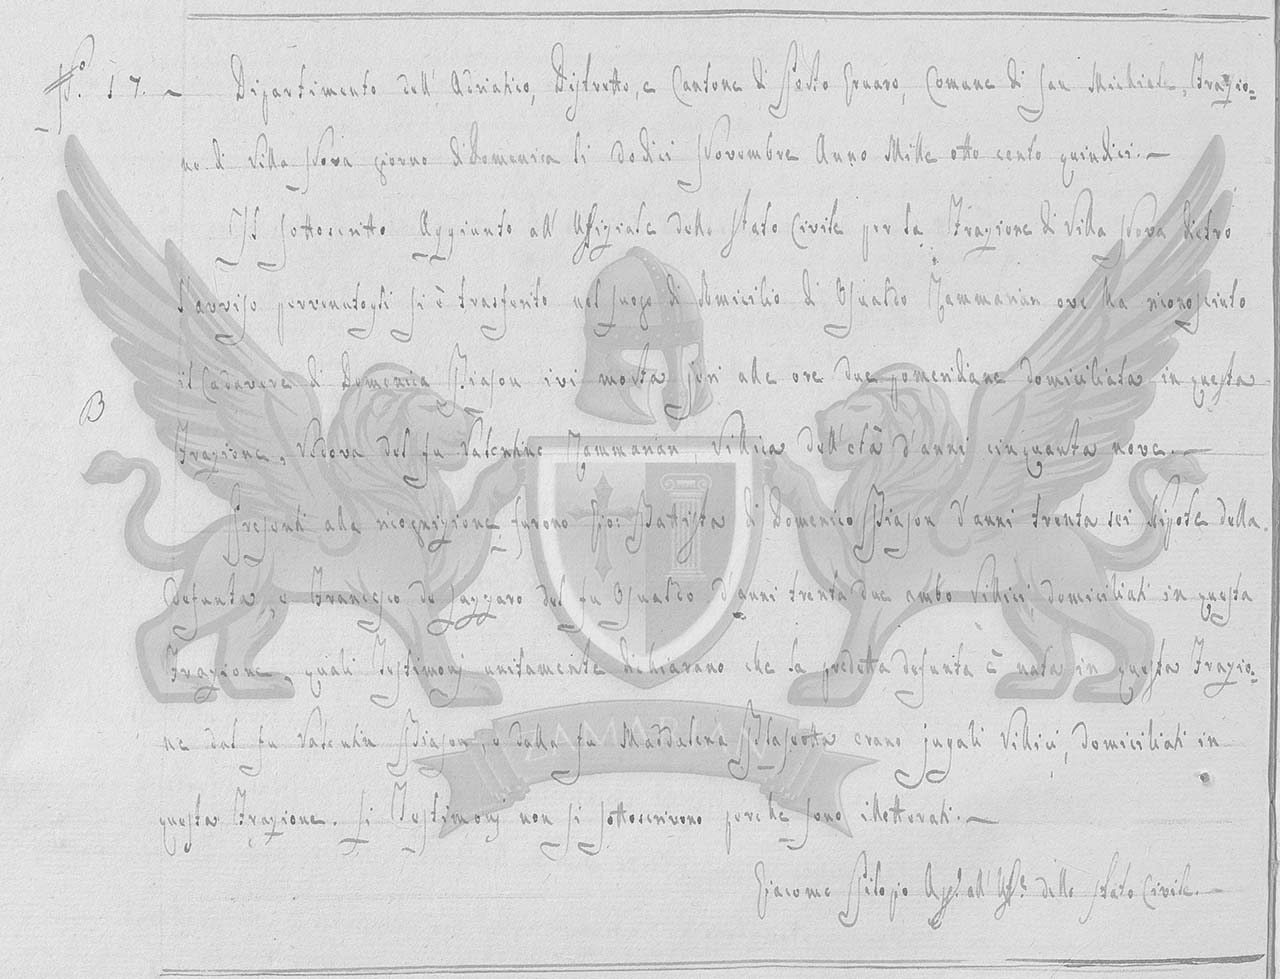 N.º 17. - Dipartimento dell' Adriatico, Distretto, e Cantone di Sesto Gruaro, Comune di San Michiele, Frazio=
ne di Villa Nova giorno di Domenica li dodici Novembre Anno Mille otto cento quindici. -
Il sottoscritto Aggiunto all' Uffiziale dello Stato Civile per la Frazione di Villa Nova dietro
l'avviso pervenutogli si è trasferito nel luogo di domicilio di Osualdo Zammarian ove ha riconosciuto
il Cadavere di Domenica Biason ivi morta jeri alle ore due pomeridiane domiciliata in questa
B
Frazione, Vedova del fu Valentino Zammarian, Villica dell'età d'anni cinquanta nove. -
Presenti alla ricognizione furono Gio: Battista di Domenico Biason d'anni trenta sei Nipote della
defunta, e Francesco de Lazzaro del fu Osualdo d'anni trenta due ambo Villici, domiciliati in questa
Frazione, quali Testimonj unitamente dichiarano che la predetta defunta è nata in questa Frazio=
ne dal fu Valentin Biason, e dalla fu Maddalena erano jugali Villici, domiciliati in
questa Frazione. Li Testimonj non si sottoscrivono perche sono illetterati. -
Giacomo Agg.º all' Uff.e dello Stato Civile. -
ZAMARIAN